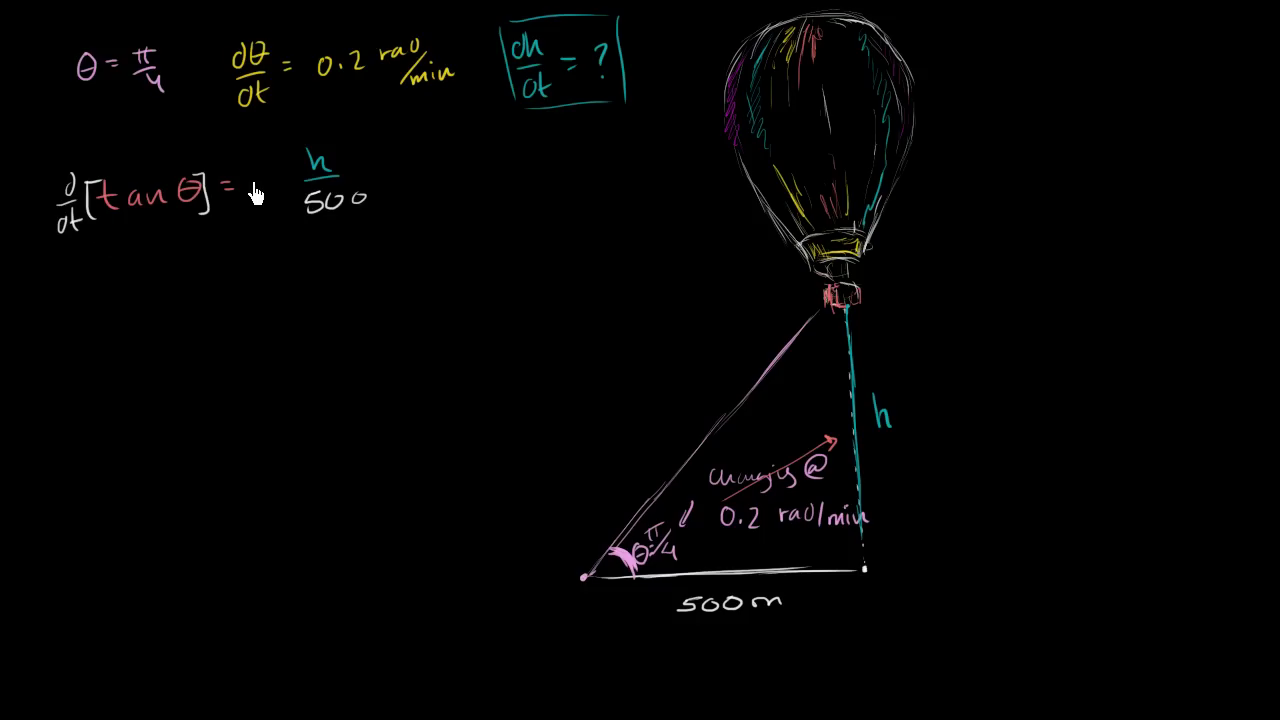 θ = π/4
dθ/dt = 0.2 rad/min
dh/dt = ?
d/dt [tan θ] = h/500
h
changing @
0.2 rad/min
θ = π/4
500 m